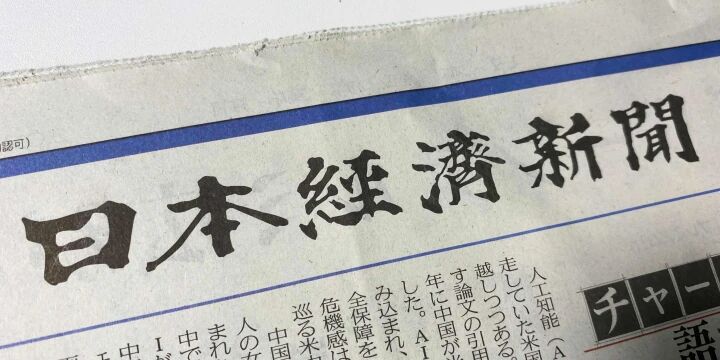 認可）
日本經濟新聞
チャー
人工知能（A
走していた米国
越しつつある
す論文の引用
年に中国が米
した。AI
み込まれ、
全保障を
危機感は
巡る米中
中国
人の女
まれ
中で
Iが
中